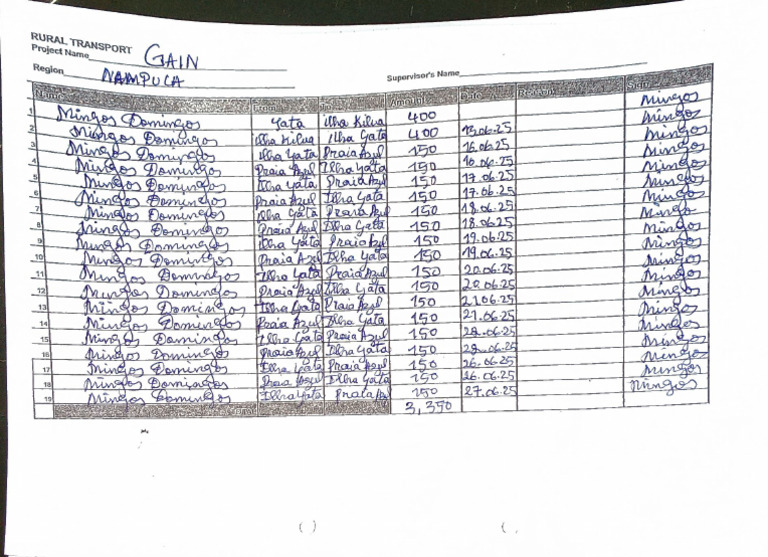 RURAL TRANSPORT
Project Name GAIN
Region NAMPULA Supervisor's Name
Name From Amount Date Reason Sign
1 Mingos Domingos Yata Ilha Kilua 400 Mingos
2 Mingos Domingos Ilha Kilua Ilha Yata 400 13.06.25 Mingos
3 Mingos Domingos Ilha Yata Praia Azul 150 16.06.25 Mingos
4 Mingos Domingos Praia Azul Ilha Yata 150 16.06.25 Mingos
5 Mingos Domingos Ilha Yata Praia Azul 150 17.06.25 Mingos
6 Mingos Domingos Praia Azul Ilha Yata 150 17.06.25 Mingos
7 Mingos Domingos Ilha Yata Praia Azul 150 18.06.25 Mingos
8 Mingos Domingos Praia Azul Ilha Yata 150 18.06.25 Mingos
9 Mingos Domingos Ilha Yata Praia Azul 150 19.06.25 Mingos
10 Mingos Domingos Praia Azul Ilha Yata 150 19.06.25 Mingos
11 Mingos Domingos Ilha Yata Praia Azul 150 20.06.25 Mingos
12 Mingos Domingos Praia Azul Ilha Yata 150 20.06.25 Mingos
13 Mingos Domingos Ilha Yata Praia Azul 150 21.06.25 Mingos
14 Mingos Domingos Praia Azul Ilha Yata 150 21.06.25 Mingos
15 Mingos Domingos Ilha Yata Praia Azul 150 Mingos
16 Mingos Domingos Praia Azul Ilha Yata 150 Mingos
17 Mingos Domingos Ilha Yata Praia Azul 150 26.06.25 Mingos
18 Mingos Domingos Praia Azul Ilha Yata 150 26.06.25 Mingos
19 Mingos Domingos Ilha Yata Praia Azul 150 27.06.25 Mingos
3,350
( ) (